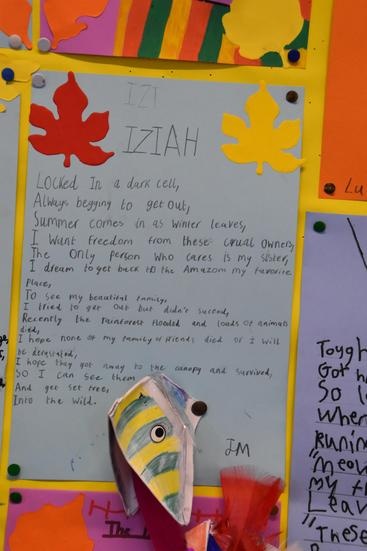 IZI
IZIAH
Locked In a dark cell,
Always begging to get out,
Summer comes in as winter leaves,
I Want freedom from these cruel owners,
The Only person who cares is my sister,
I dream to get back to the Amazom my favorite
place,
To see my beautiful family,
I tried to get out but didn't succeed,
Recently the rainforest flooded and loads of animals
died,
I hope none of my family or friends died or I will
be devastated,
I hope they got away to the canopy and survived,
So I can see them
And get set free,
Into the wild.
IM
Lu
Tough
Got h
So l
When
Runin
"Meow
my f
Leav
"These
The